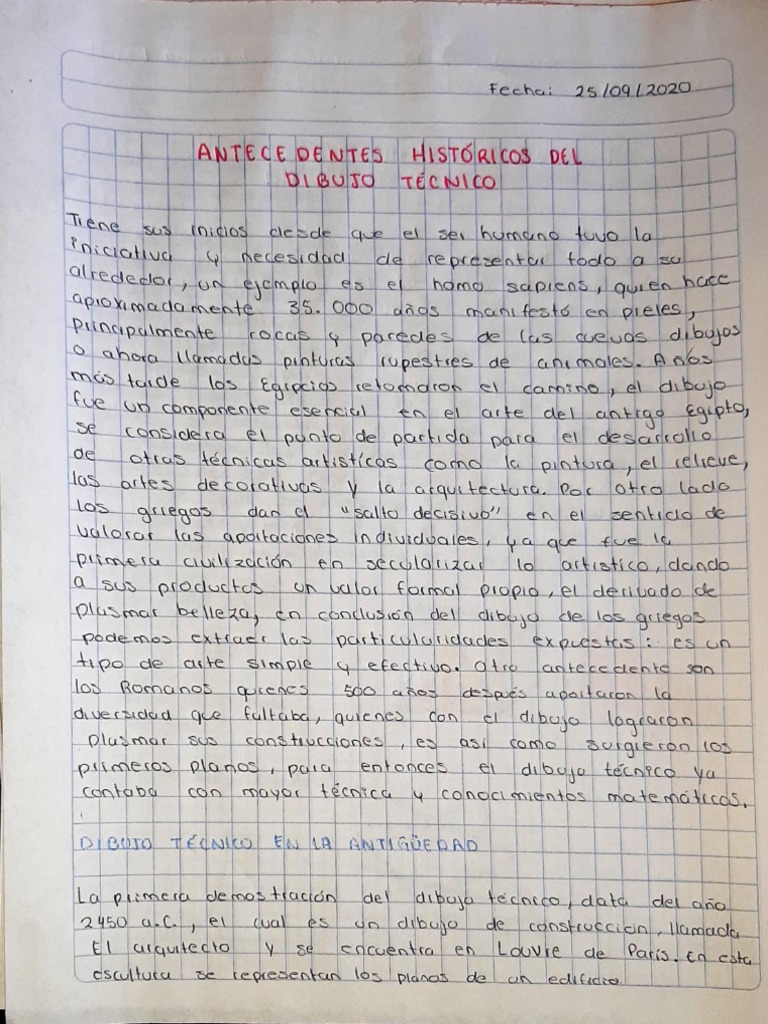 Fecha: 25/09/2020
ANTECEDENTES HISTÓRICOS DEL
DIBUJO TÉCNICO
Tiene sus inicios desde que el ser humano tuvo la
iniciativa y necesidad de representar todo a su
alrededor, un ejemplo es el homo sapiens, quien hace
aproximadamente 35.000 años manifestó en pieles,
principalmente rocas y paredes de las cuevas dibujos
o ahora llamadas pinturas rupestres de animales. Años
más tarde los Egipcios retomaron el camino, el dibujo
fue un componente esencial en el arte del antigo Egipto,
se considera el punto de partida para el desarrollo
de otras técnicas artisticas como la pintura, el relieve,
las artes decorativas y la arquitectura. Por otro lado
los griegos dan el "salto decisivo" en el sentido de
valorar las aportaciones individuales, ya que fue la
primera civilización en secularizar lo artistico, dando
a sus productos un valor formal propio, el derivado de
plasmar belleza, en conclusión del dibujo de los griegos
podemos extraer las particularidades expuestas: es un
tipo de arte simple y efectivo. Otro antecedente son
los Romanos quienes 500 años después aportaron la
diversidad que faltaba, quienes con el dibujo lograron
plasmar sus construcciones, es así como surgieron los
primeros planos, para entonces el dibujo técnico ya
contaba con mayor técnica y conocimientos matemáticos.
DIBUJO TÉCNICO EN LA ANTIGÜEDAD
La primera demostración del dibujo técnico, data del año
2450 a.C., el cual es un dibujo de construcción, llamada
El arquitecto y se encuentra en Louvre de París. En esta
escultura se representan los planos de un edificio.